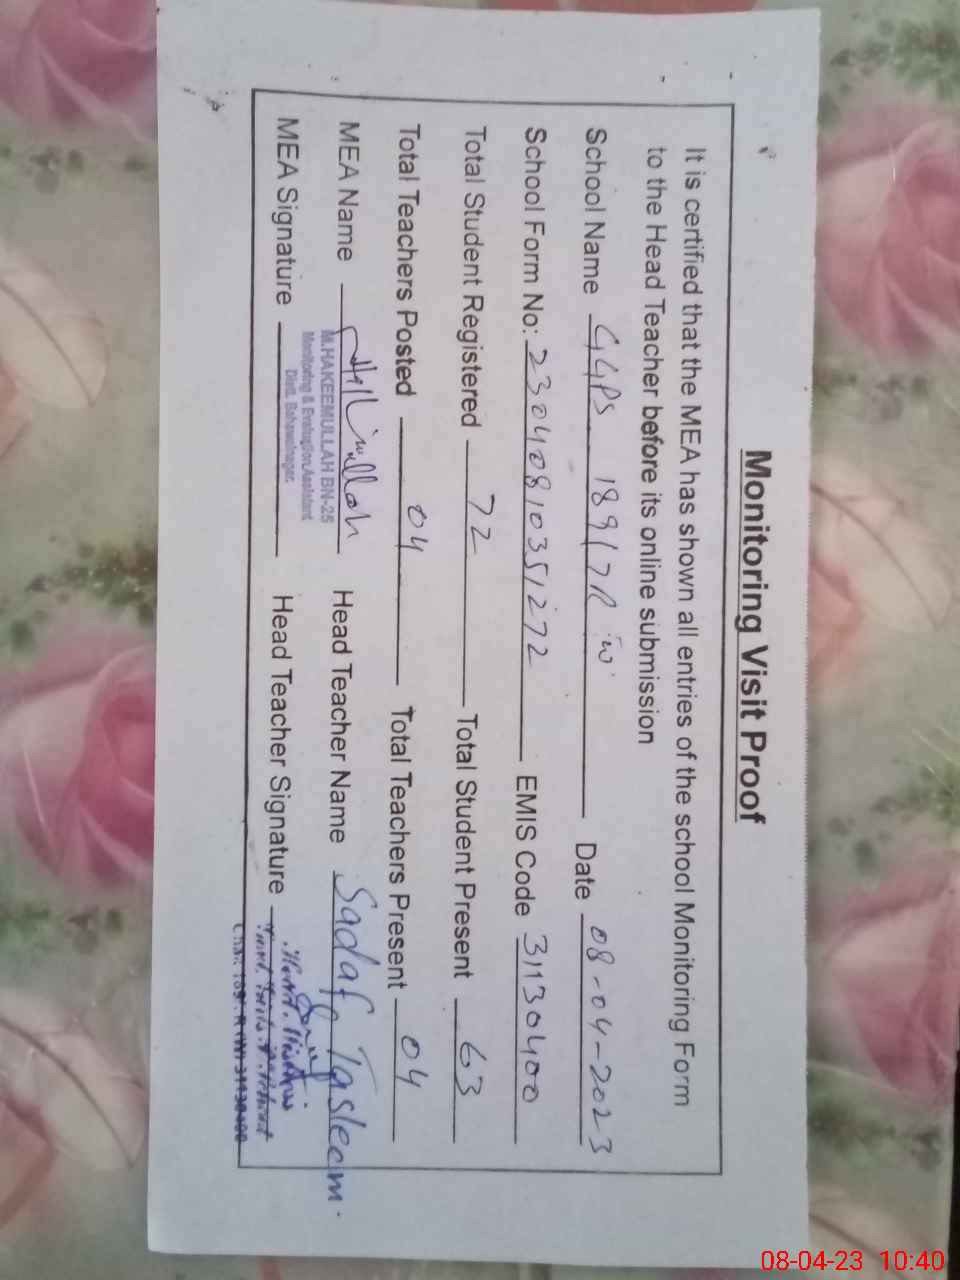 Monitoring Visit Proof
It is certified that the MEA has shown all entries of the school Monitoring Form
to the Head Teacher before its online submission
School Name GGPS 189/7R W Date 08-04-2023
School Form No: 23040810351272 EMIS Code 31130400
Total Student Registered 72 Total Student Present 63
Total Teachers Posted 04 Total Teachers Present 04
MEA Name Head Teacher Name Sadaf Tasleem.
M.HAKEEMULLAH BN-25
Monitoring & Evaluation Assistant
Distt. Bahawalnagar
MEA Signature Head Teacher Signature
Head Mistress
08-04-23 10:40